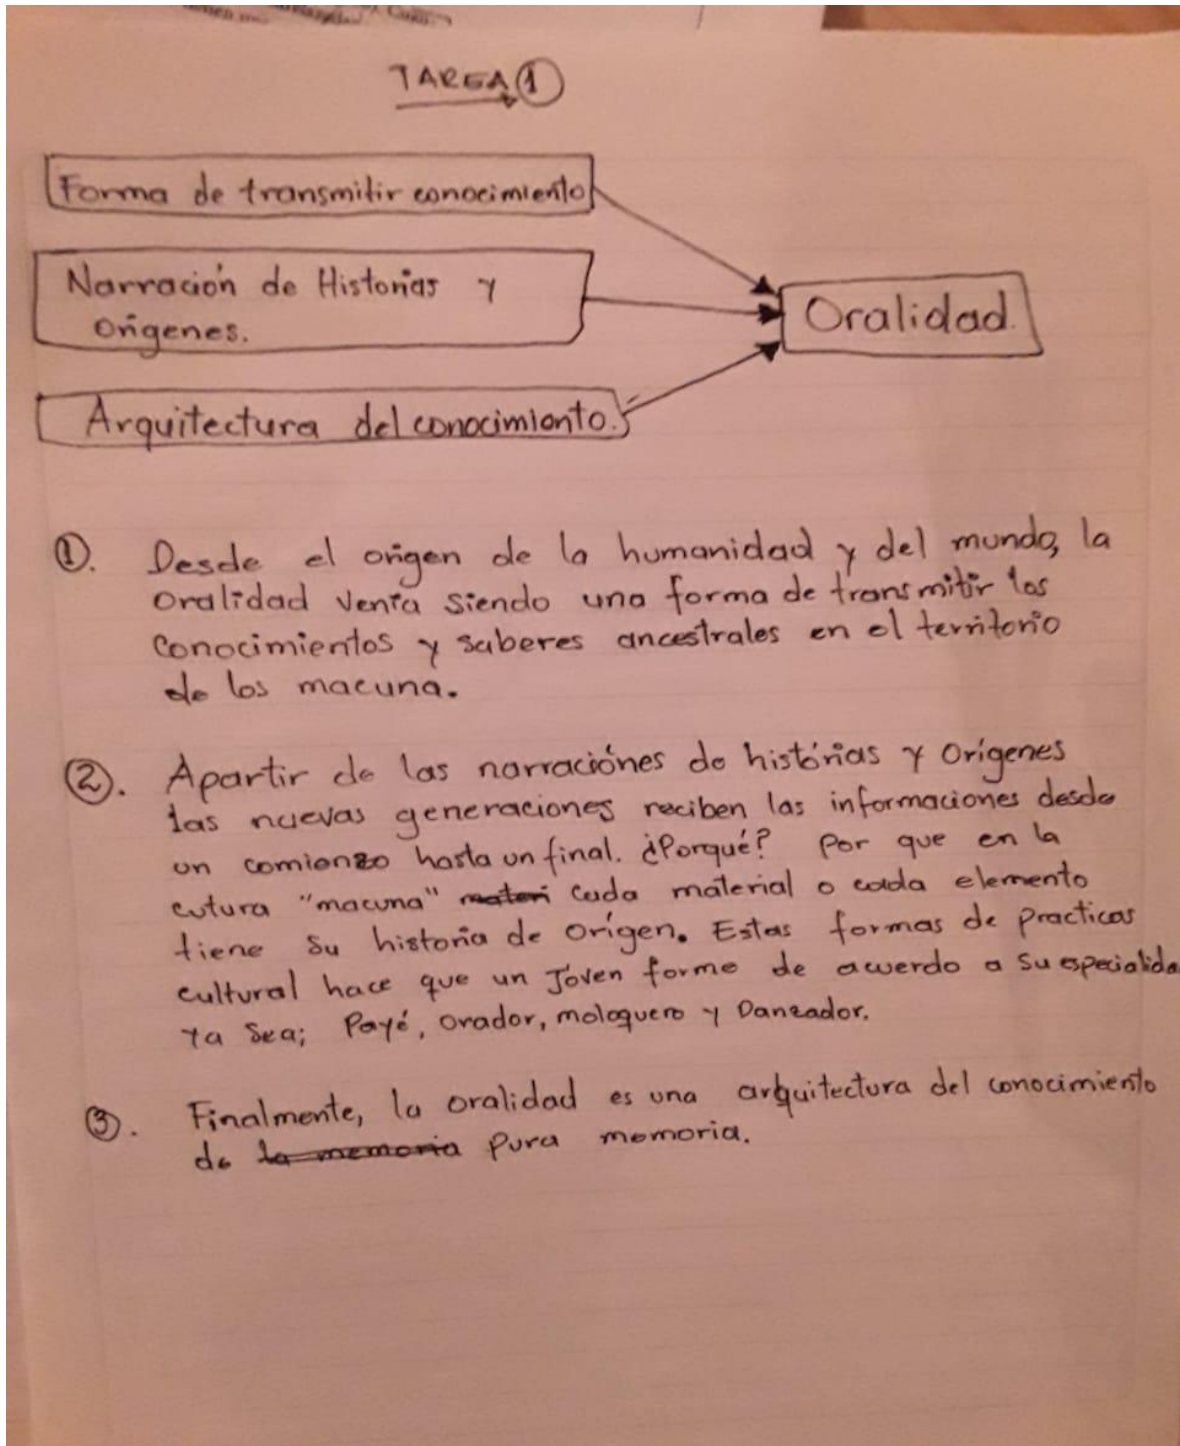 TAREA ①
Forma de transmitir conocimiento
Narración de Historias y
Orígenes.
Oralidad.
Arquitectura del conocimiento.
①. Desde el origen de la humanidad y del mundo, la
Oralidad venía siendo una forma de transmitir los
conocimientos y saberes ancestrales en el territorio
de los macuna.
②. Apartir de las narraciónes de histórias y Orígenes
las nuevas generaciones reciben las informaciones desde
un comienzo hasta un final. ¿Porqué? Por que en la
cutura "macuna" cada material o cada elemento
tiene su historia de Origen. Estas formas de practicas
cultural hace que un Joven forme de acuerdo a su especialida
ya sea; Payé, orador, maloquero y Danzador.
③. Finalmente, la oralidad es una arquitectura del conocimiento
de pura memoria.